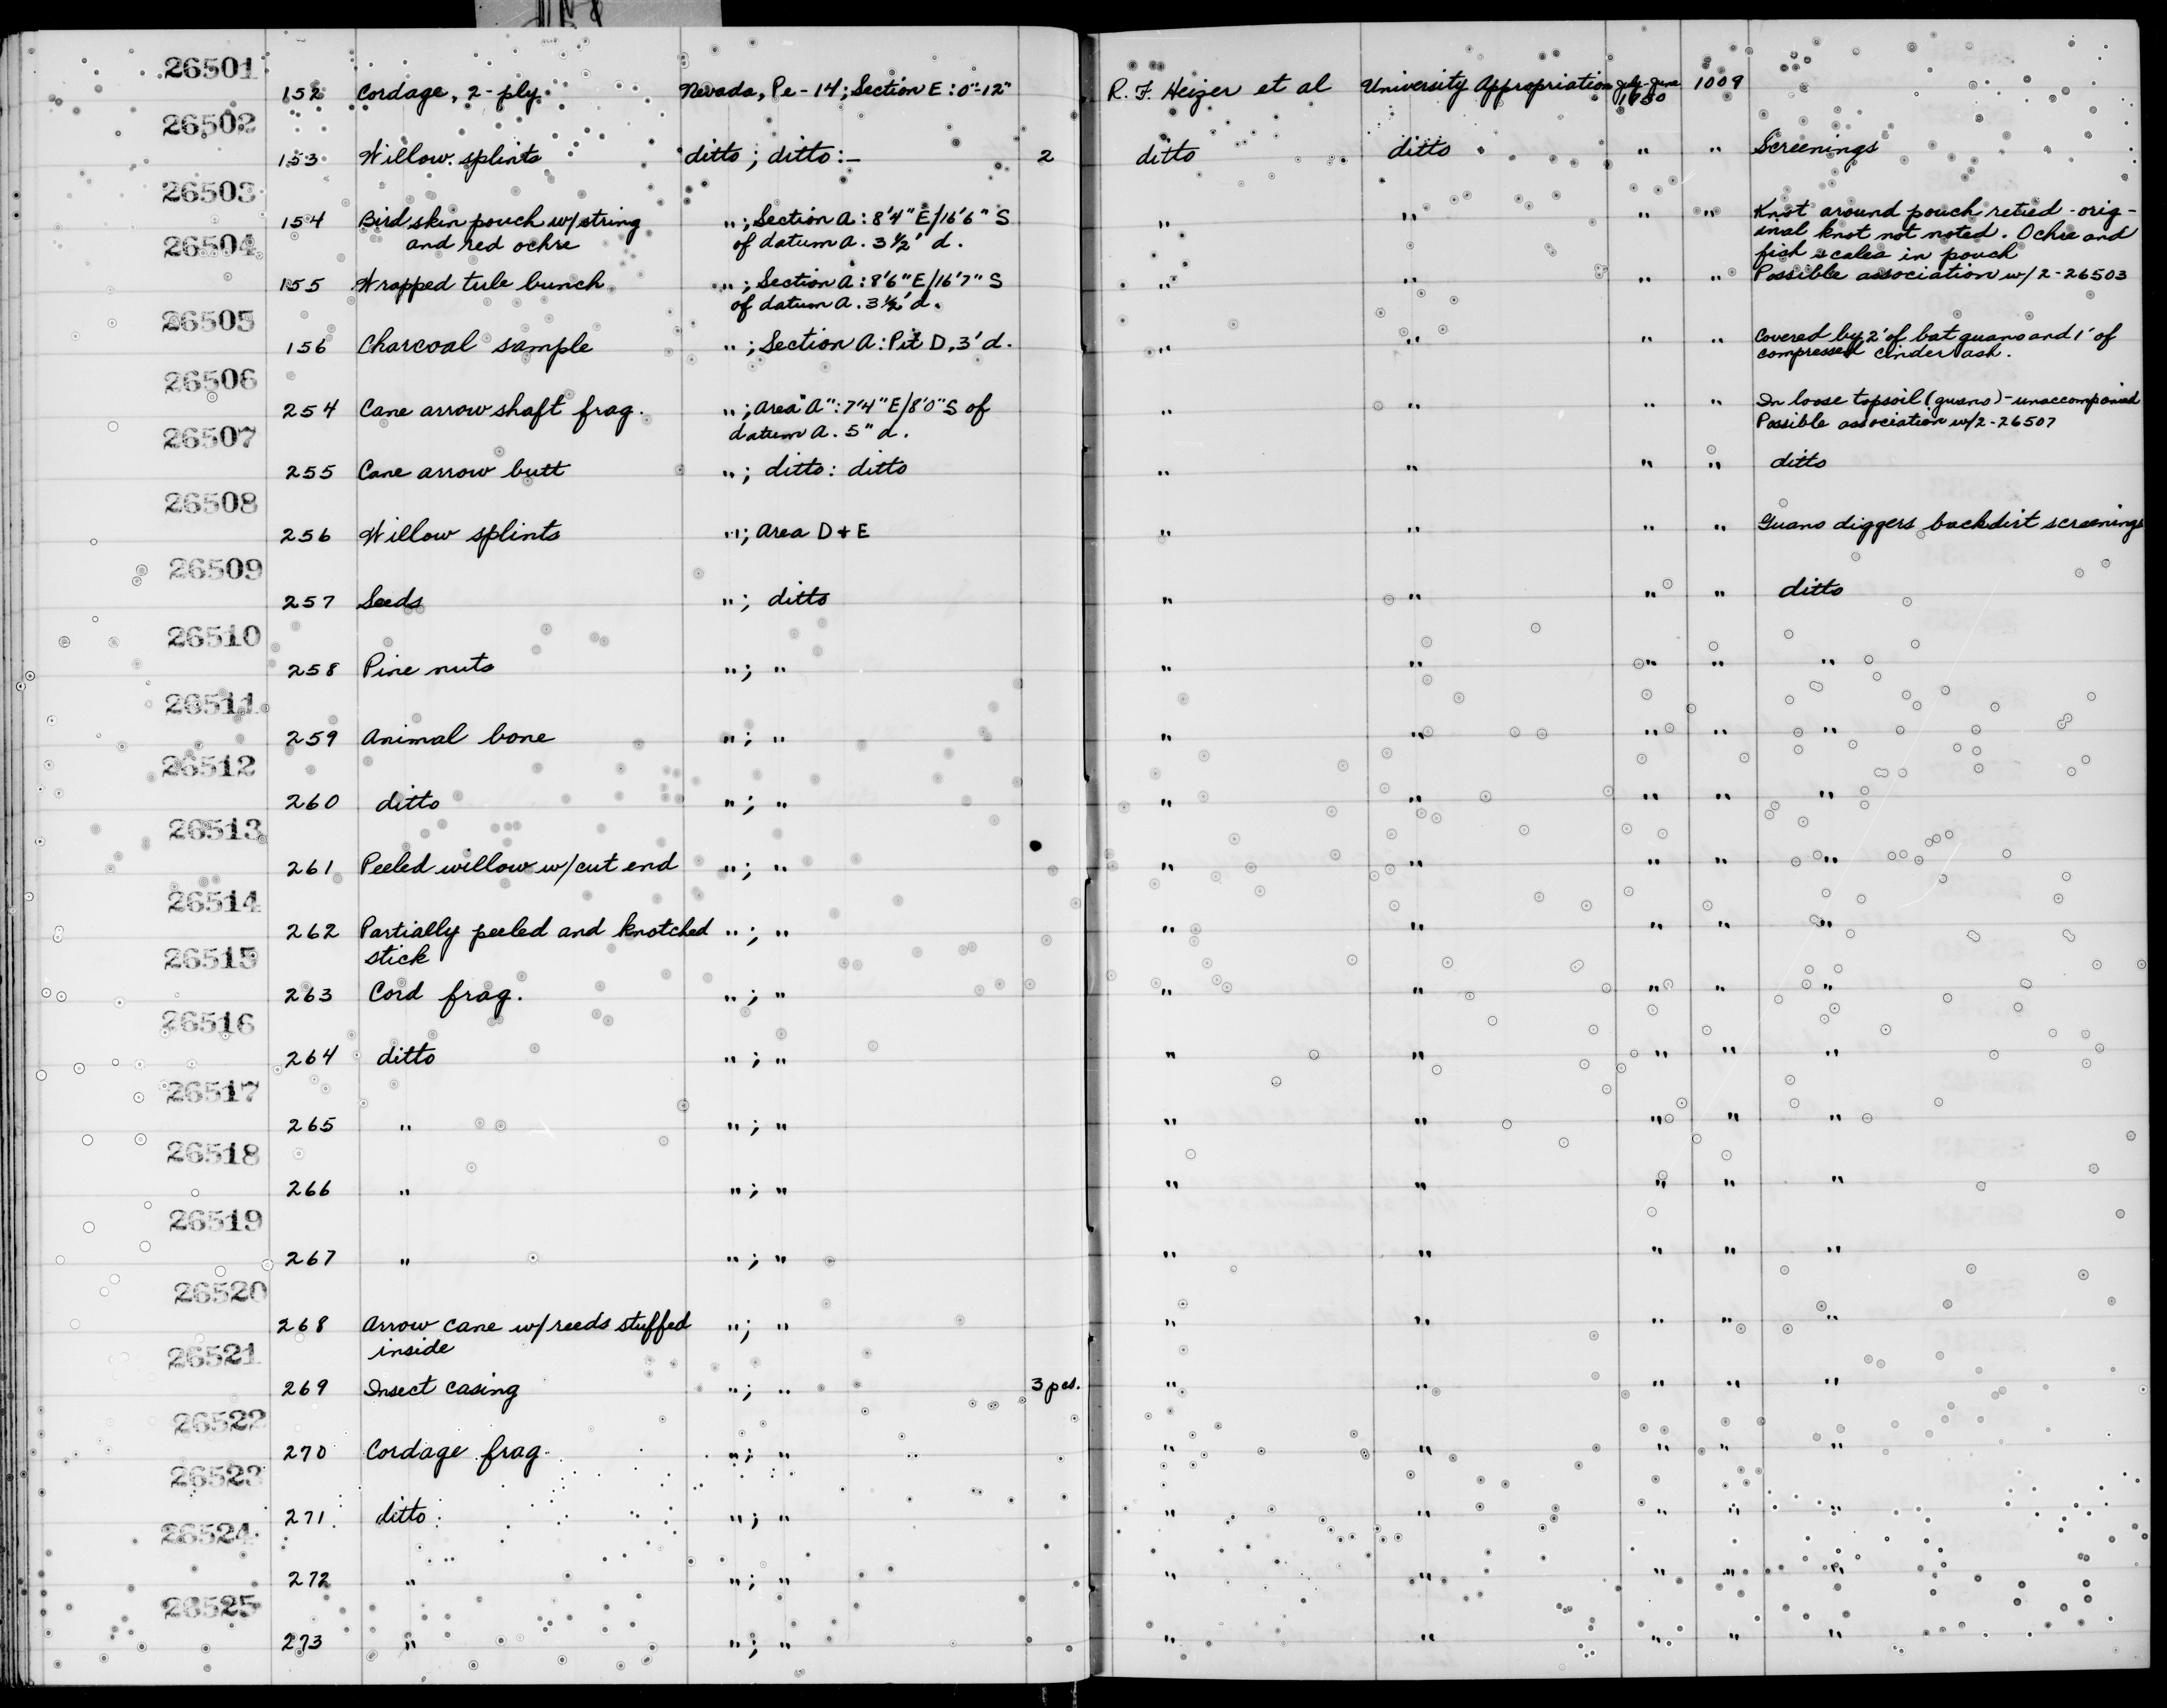 26501
152 Cordage, 2-ply. Nevada, Pe-14; Section E: 0"-12" R. F. Heizer et al University Appropriation July-June 1950 1009
26502
153 Willow splints ditto; ditto:— 2 ditto ditto " " Screenings
26503
154 Bird skin pouch w/string "; Section A: 8'4" E/16'6" S " " " " Knot around pouch retied - orig-
and red ochre of datum A. 3½' d. inal knot not noted. Ochre and
fish scales in pouch
26504
155 Wrapped tule bunch "; Section A: 8'6" E/16'7" S " " " " Possible association w/ 2-26503
of datum A. 3½' d.
26505
156 Charcoal sample "; Section A: Pit D, 3' d. " " " " Covered by 2' of bat guano and 1' of
compressed cinder ash.
26506
254 Cane arrow shaft frag. "; Area "A": 7'4" E/8'0" S of " " " " In loose topsoil (guano) - unaccompanied
datum A. 5" d. Possible association w/2-26507
26507
255 Cane arrow butt "; ditto: ditto " " " " ditto
26508
256 Willow splints "; Area D + E " " " " Guano diggers backdirt screenings
26509
257 Seeds "; ditto " " " " ditto
26510
258 Pine nuts "; " " " " " "
26511
259 Animal bone "; " " " " " "
26512
260 ditto "; " " " " " "
26513
261 Peeled willow w/cut end "; " " " " " "
26514
262 Partially peeled and knotched "; " " " " " "
stick
26515
263 Cord frag. "; " " " " " "
26516
264 ditto "; " " " " " "
26517
265 " "; " " " " " "
26518
266 " "; " " " " " "
26519
267 " "; " " " " " "
26520
268 Arrow cane w/reeds stuffed "; " " " " " "
inside
26521
269 Insect casing "; " 3 pcs. " " " " "
26522
270 Cordage frag. "; " " " " " "
26523
271 ditto "; " " " " " "
26524
272 " "; " " " " " "
26525
273 " "; " " " " " "